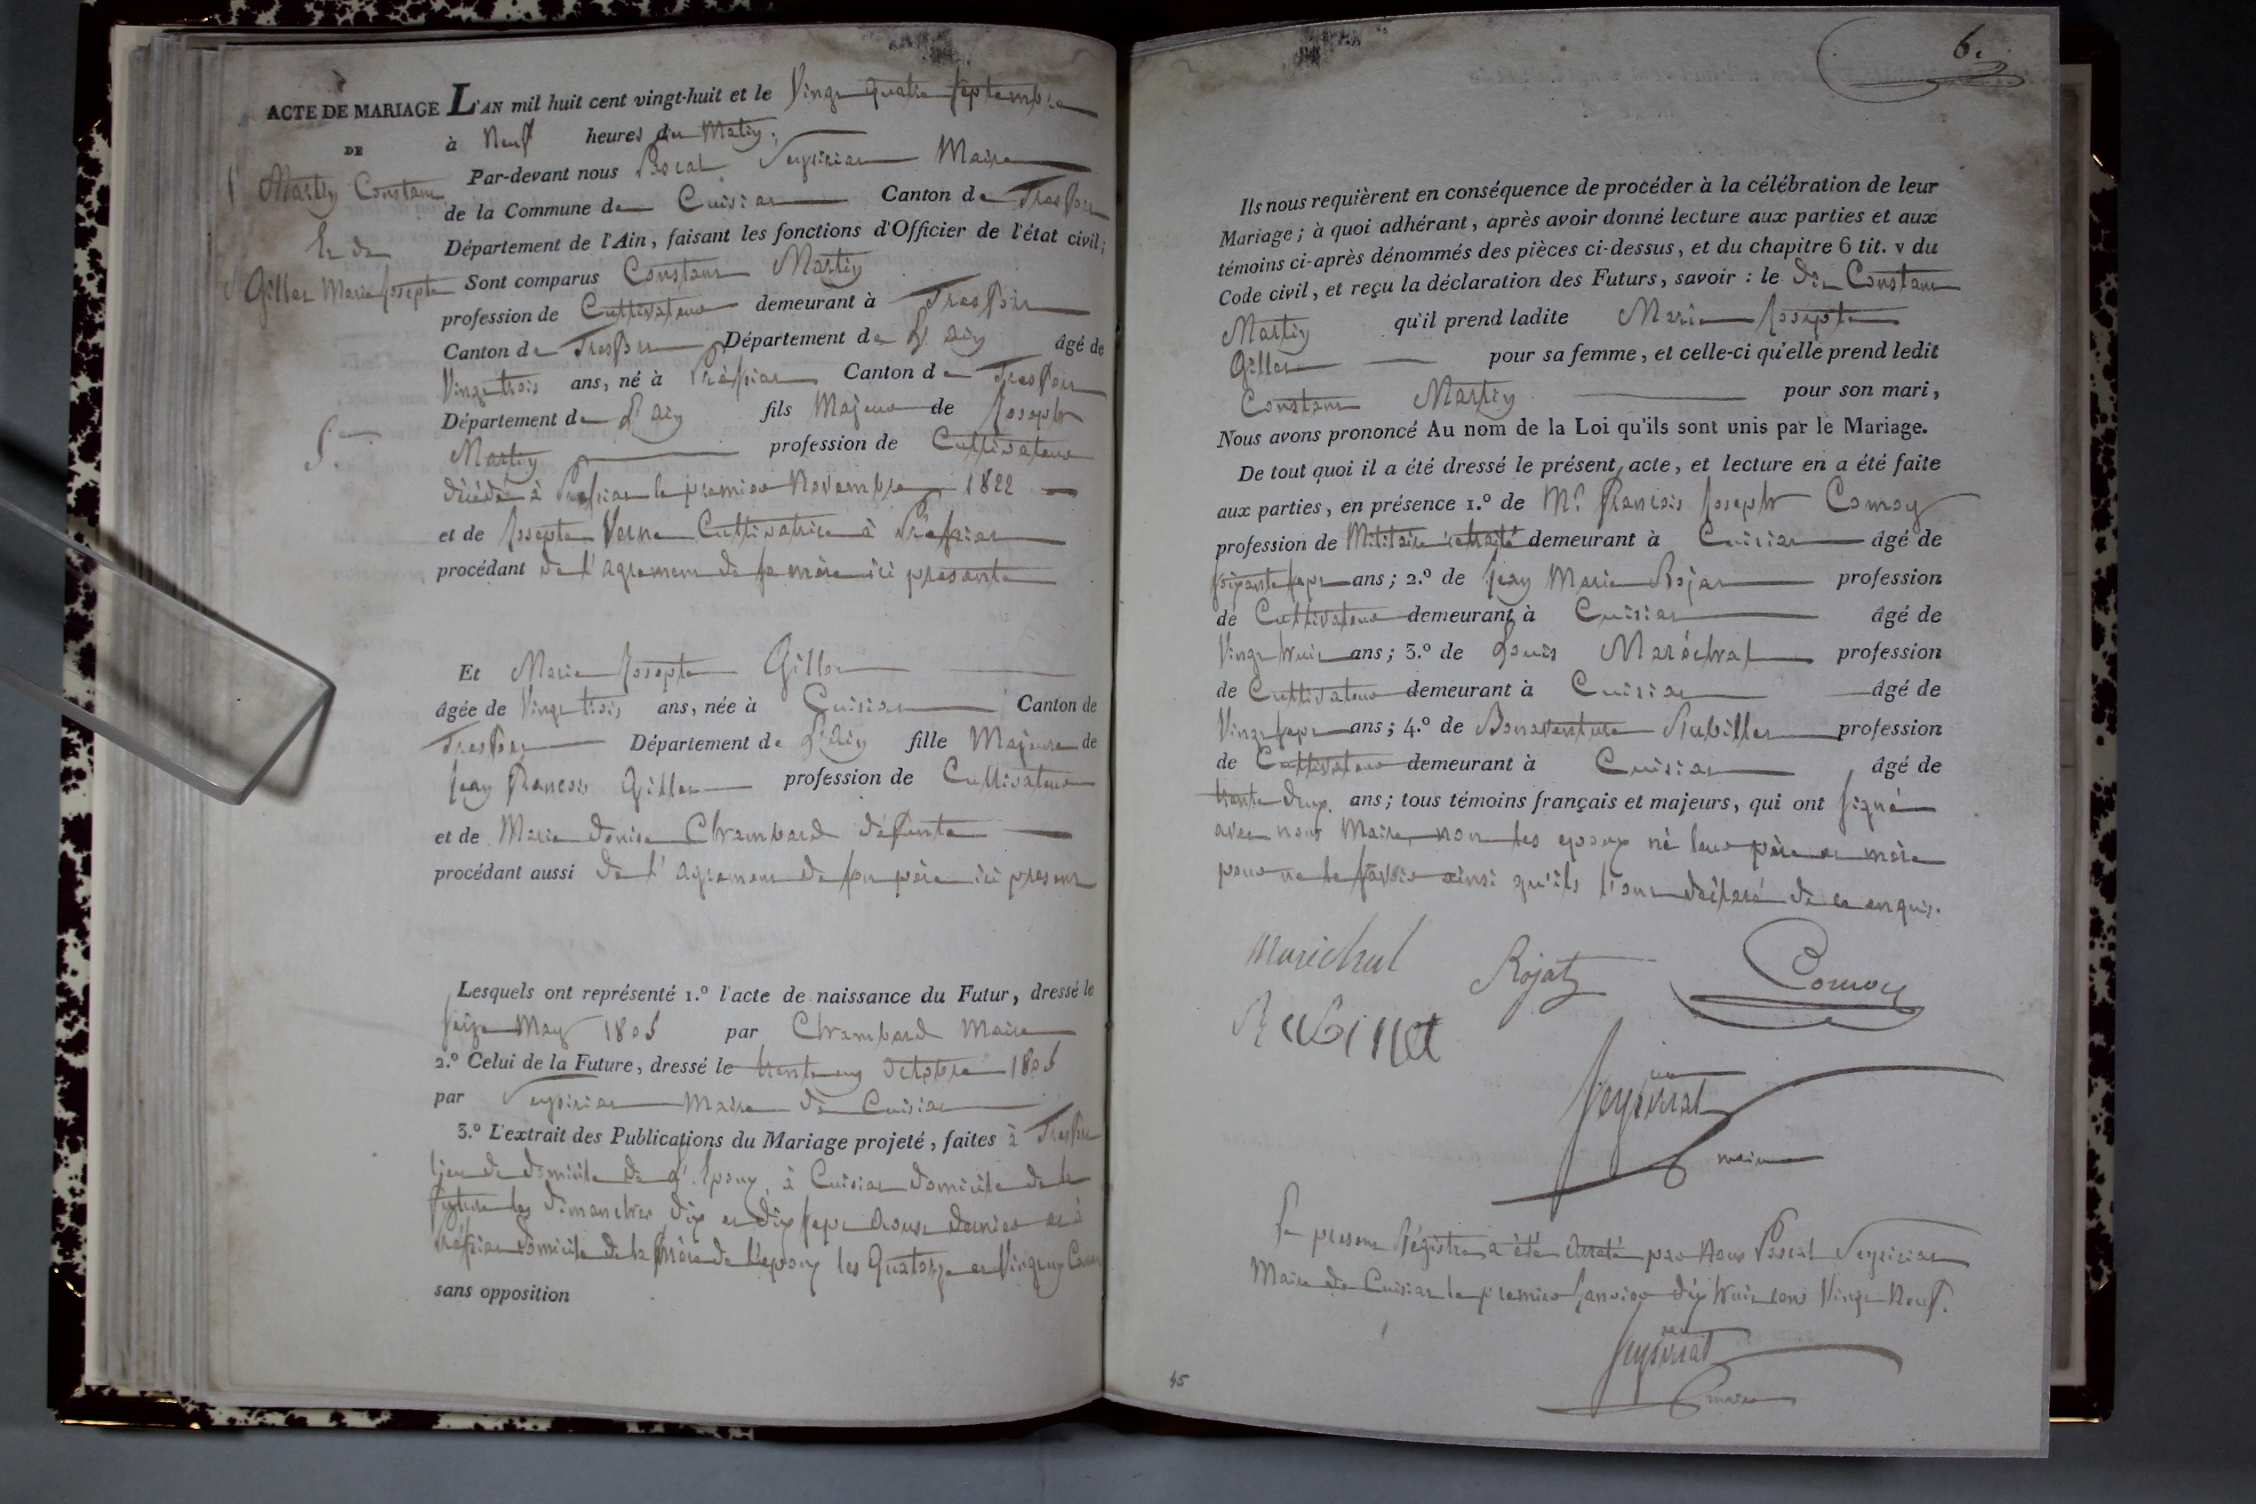 ACTE DE MARIAGE L'AN mil huit cent vingt-huit et le Vingt quatre septembre
DE
à Neuf heures du Matin;
Par-devant nous Pascal Seyssiriat Maire
Martin Constant
de la Commune de Cuisiat Canton de Treffort
Et de
Département de l'Ain, faisant les fonctions d'Officier de l'état civil;
Gillet Marie Josepte
Sont comparus Constant Martin
profession de Cultivateur demeurant à Treffort
Canton de Treffort Département de L'ain âgé de
Vingt trois ans, né à Préssiat Canton de Treffort
Département de L'ain fils Majeur de Joseph
Martin profession de Cultivateur
décédé à Pressiat le premier Novembre 1822
et de Josepte Verne Cultivatrice à Préssiat
procédant de l'agrement de sa mère ici presente
Et Marie Josepte Gillet
âgée de Vingt trois ans, née à Cuisiat Canton de
Treffort Département de L'ain fille Majeure de
Jean François Gillet profession de Cultivateur
et de Marie Denise Chambard défunte
procédant aussi de l'agrement de son père ici present
Lesquels ont représenté 1.º l'acte de naissance du Futur, dressé le
seize May 1805 par Chambard Maire
2.º Celui de la Future, dressé le trente un octobre 1805
par Seyssiriat Maire de Cuisiat
3.º L'extrait des Publications du Mariage projeté, faites à Treffort
lieu de domicile de L'Epoux, à Cuisiat domicile de la
future les dimanches dix et dix sept Aoust dernier et à
Préssiat domicile de la Mère de l'epoux les Quatorze et Vingt un
sans opposition
6.
Ils nous requièrent en conséquence de procéder à la célébration de leur
Mariage; à quoi adhérant, après avoir donné lecture aux parties et aux
témoins ci-après dénommés des pièces ci-dessus, et du chapitre 6 tit. v du
Code civil, et reçu la déclaration des Futurs, savoir: le dit Constant
Martin qu'il prend ladite Marie Josepte
Gillet pour sa femme, et celle-ci qu'elle prend ledit
Constant Martin pour son mari,
Nous avons prononcé Au nom de la Loi qu'ils sont unis par le Mariage.
De tout quoi il a été dressé le présent acte, et lecture en a été faite
aux parties, en présence 1.º de Mr. François Joseph Comoy
profession de Militaire retraité demeurant à Cuisiat âgé de
soixante sept ans; 2.º de Jean Marie Rojat profession
de Cultivateur demeurant à Cuisiat âgé de
Vingt huit ans; 3.º de Louis Maréchal profession
de Cultivateur demeurant à Cuisiat âgé de
Vingt sept ans; 4.º de Bonaventure Rubillet profession
de Cultivateur demeurant à Cuisiat âgé de
trente deux ans; tous témoins français et majeurs, qui ont signé
avec nous Maire non les epoux né leur père et mère
pour ne le savoir ainsi qu'ils l'ont déclaré de ce enquis.
Marichal
Rojat
Comoy
Seyssiriat
maire
Le present Régistre a été Arrêté par Nous Pascal Seyssiriat
Maire de Cuisiat le premier Janvier dix huit cent Vingt Neuf.
Seyssiriat
maire
45